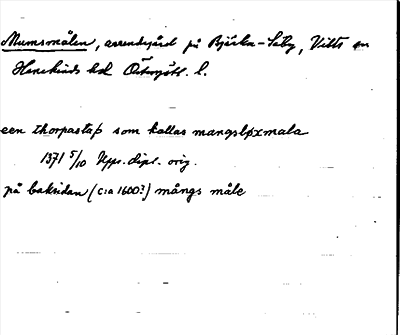 Mumsmålen, arrendegård på Bjärka-Säby, Vists sn
Hanekinds hd Östergötl. l.
een thorpastaþ som kallas mangsløxmala
1371 5/10 Upps. dipl. orig.
på baksidan (c:a 1600?) mångs måle